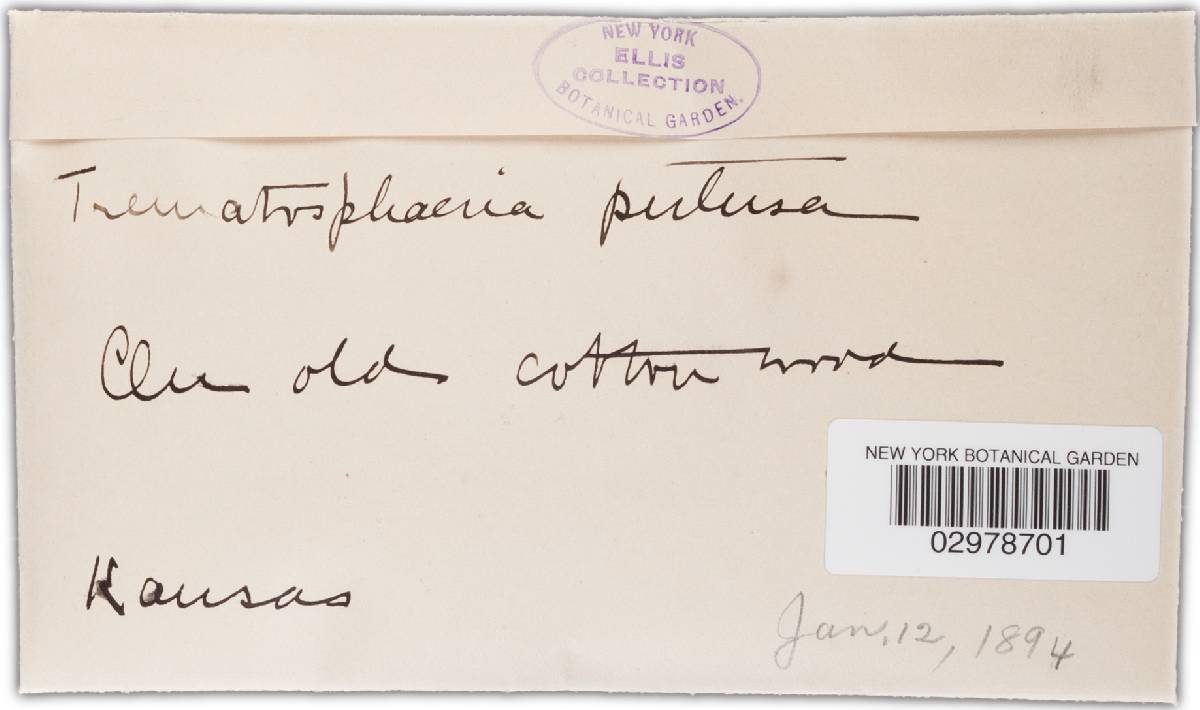 NEW YORK
ELLIS
COLLECTION
BOTANICAL GARDEN.
Trematosphaeria pertusa
On old cotton wood
NEW YORK BOTANICAL GARDEN
02978701
Kansas
Jan. 12, 1894